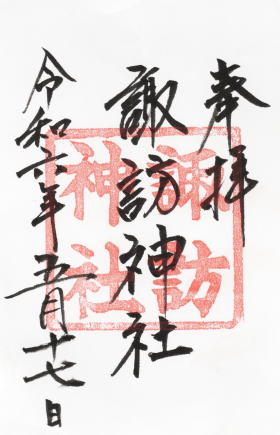 奉拝
諏訪神社
諏訪
神社
令和六年五月十七日